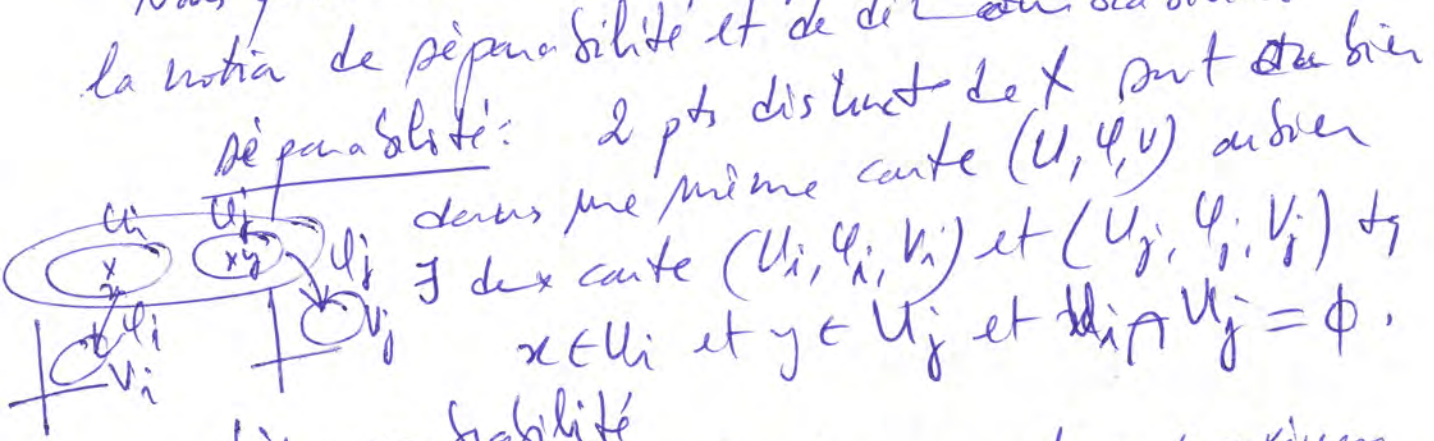 la notion de séparabilité et de
séparabilité: 2 pts distinct de X sont ou bien
dans une même carte (U, φ, V) ou bien
∃ deux carte (Ui, φi, Vi) et (Uj, φj, Vj) tq
x ∈ Ui et y ∈ Uj et Ui ∩ Uj = ϕ.
Ui Uj
x x y φj
φi Vj
Vi